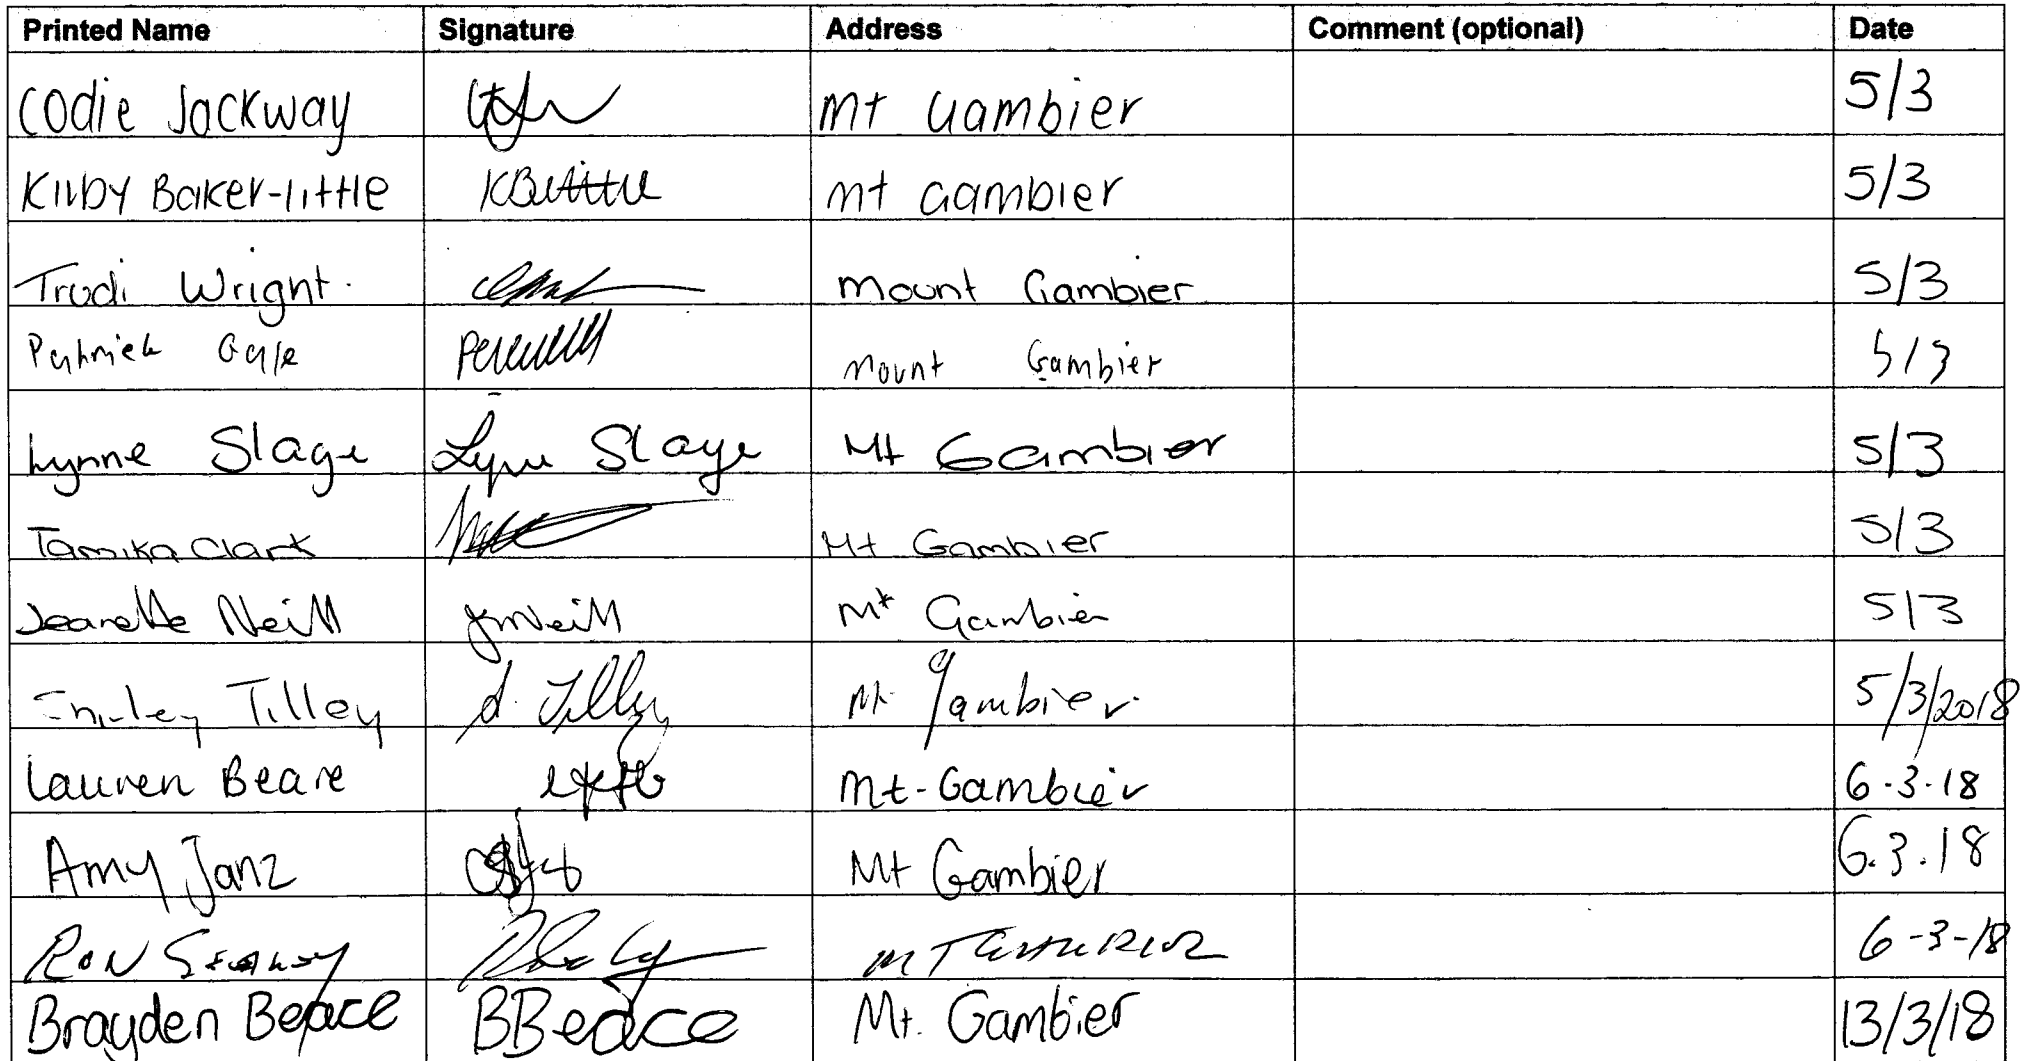 Printed Name Signature Address Comment (optional) Date
Codie Jackway Mt Gambier 5/3
Kilby Baker-little KBlittle mt Gambier 5/3
Trudi Wright. Mount Gambier 5/3
Patrick Mount Gambier 5/3
Lynne Slage Lynne Slage Mt Gambier 5/3
Tamika Clark Mt Gambier 5/3
Jeanette Neill JMNeill Mt Gambier 5/3
Shirley Tilley S. Tilley Mt. Gambier. 5/3/2018
Lauren Beare Mt-Gambier 6-3-18
Amy Janz Mt Gambier 6.3.18
RON MT GAMBIER 6-3-18
Brayden Beace BBeace Mt. Gambier 13/3/18